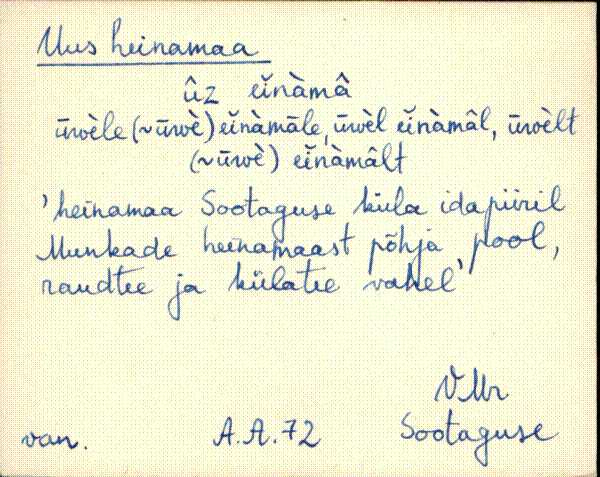 Uus heinamaa
ûz eĭnàmâ
ūwèle (~ūwè) eĭnàmāle, ūwèl eĭnàmâl, ūwèlt
(~ūwè) eĭnàmâlt
'heinamaa Sootaguse küla idapiiril
Munkade heinamaast põhja pool,
raudtee ja külatee vahel'
VMr
van. A.A.72 Sootaguse